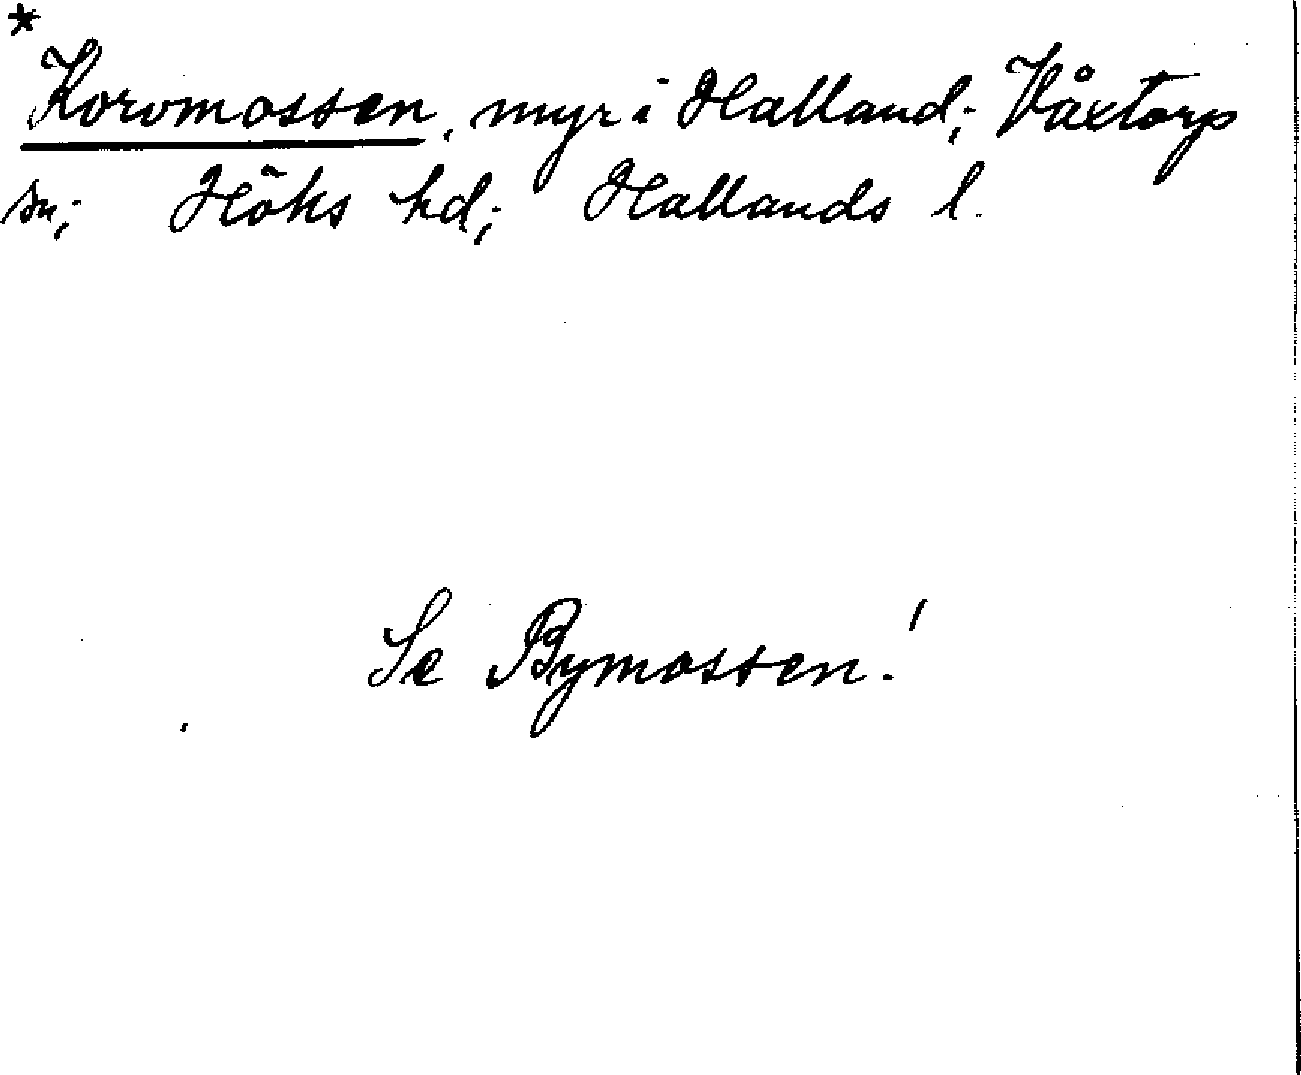 *
Korvmossen, myr i Halland; Våxtorps
sn; Höks hd; Hallands l.
Se Bymossen!